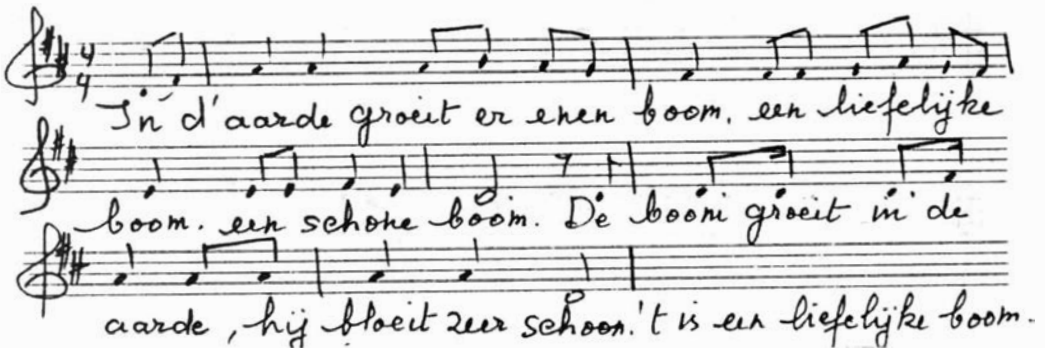 4
4
In d'aarde groeit er enen boom, een liefelijke
boom. een schone boom. De boom groeit in de
aarde, hij bloeit zeer schoon. 't is een liefelijke boom.